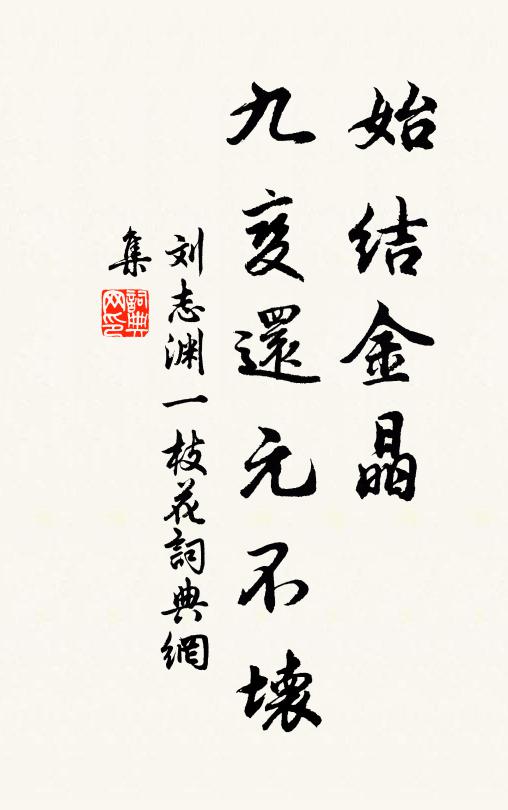 始结金晶
九变還元不壊
刘志渊一枝花詞典網
集
詞典
网印